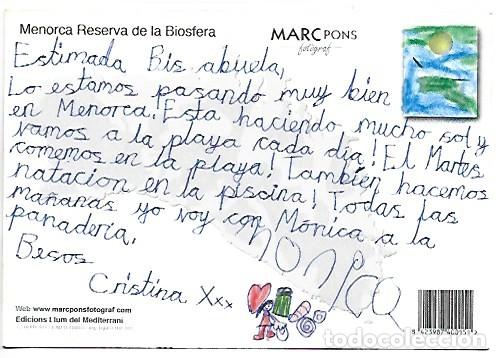 Menorca Reserva de la Biosfera
MARC PONS
fotògraf
Estimada Bis abuela,
Lo estamos pasando muy bien
en Menorca! Esta haciendo mucho sol y
vamos a la playa cada dia! El Martes
comemos en la playa! También hacemos
natacion en la piscina! Todas las
mañanas yo voy con Mónica a la
panadería.
MONICA
Besos
Cristina Xxx
Web www.marcponsfotograf.com
Edicions Llum del Mediterrani
todocoleccion.net